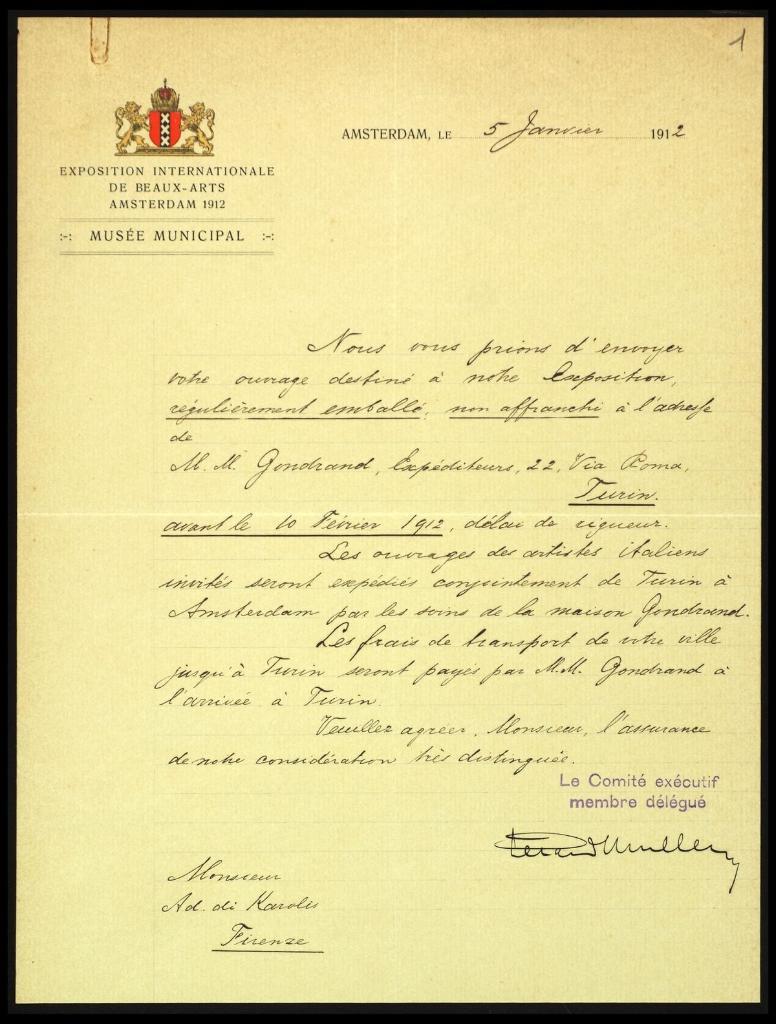 1
AMSTERDAM, LE 5 Janvier 1912
EXPOSITION INTERNATIONALE
DE BEAUX-ARTS
AMSTERDAM 1912
:-: MUSÉE MUNICIPAL :-:
Nous vous prions d'envoyer
votre ouvrage destiné à notre Exposition,
régulièrement emballé, non affranchi à l'adresse
de
M. M. Gondrand, Expéditeurs, 22, Via Roma,
Turin.
avant le 10 Février 1912, délai de rigueur.
Les ouvrages des artistes italiens
invités seront expédiés conjointement de Turin à
Amsterdam par les soins de la maison Gondrand.
Les frais de transport de votre ville
jusqu'à Turin seront payés par M.M. Gondrand à
l'arrivée à Turin.
Veuillez agréer, Monsieur, l'assurance
de notre considération très distinguée.
Le Comité exécutif
membre délégué
Monsieur
Ad. di Karolis
Firenze